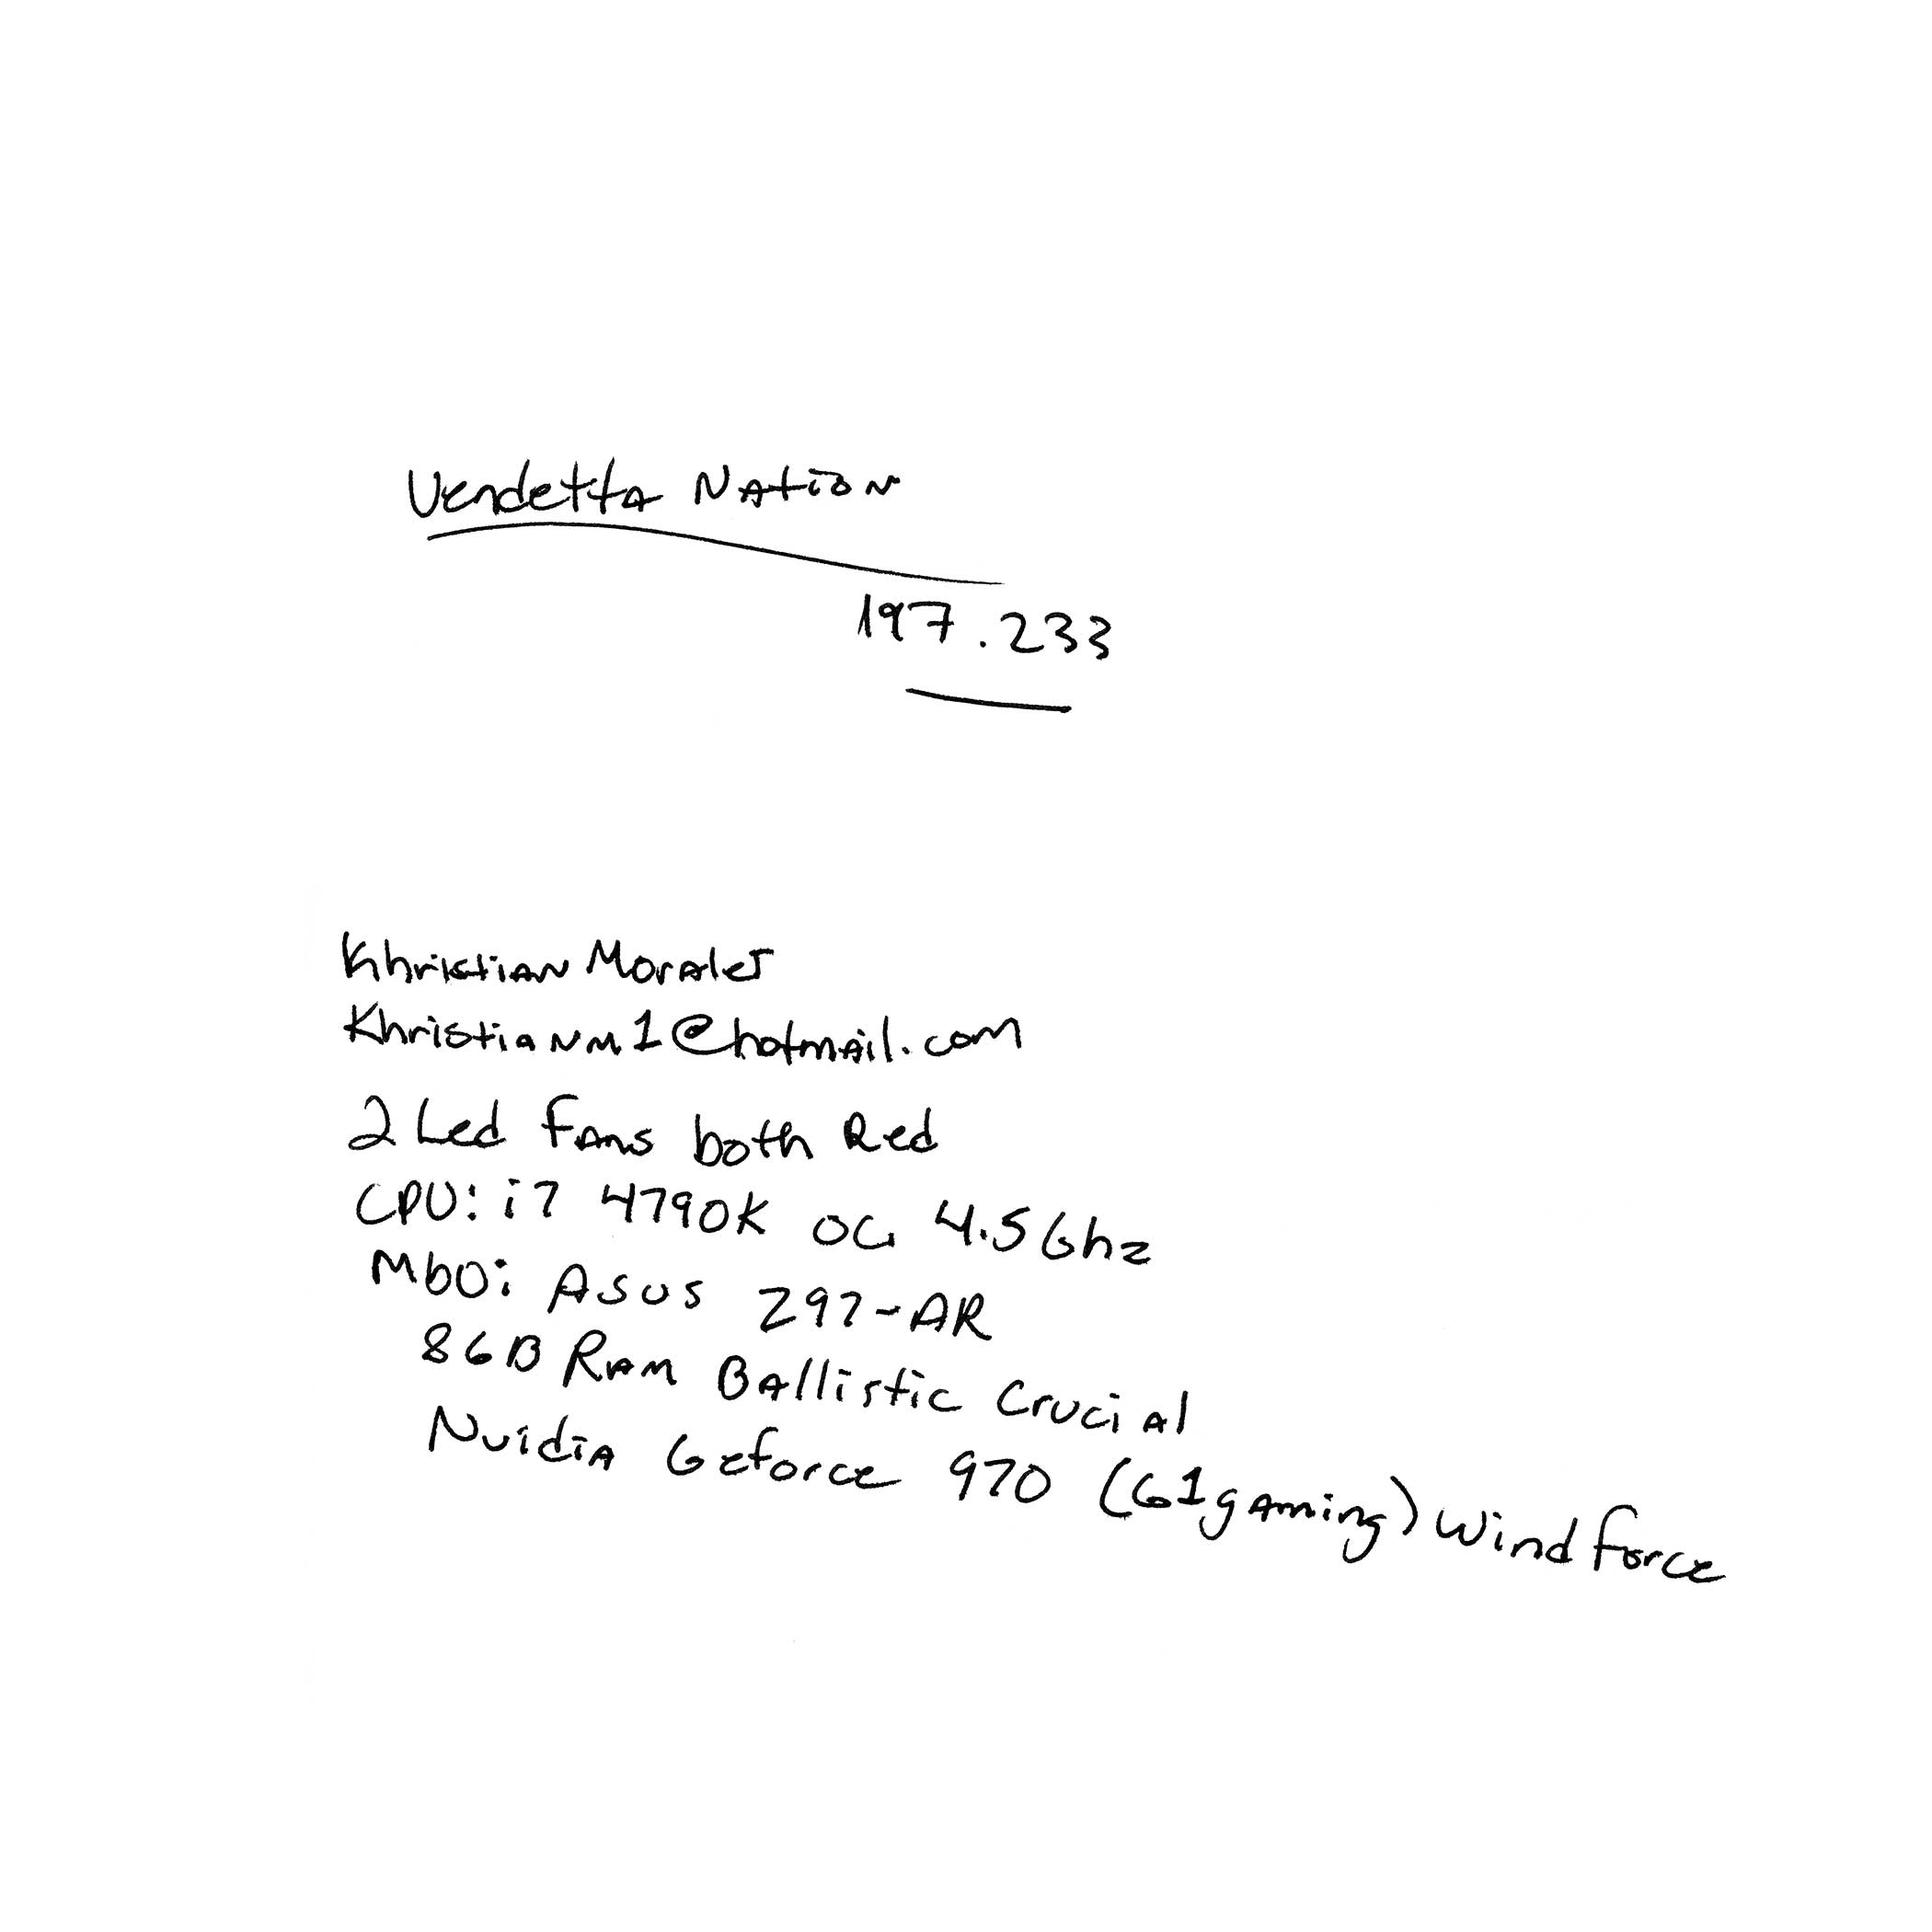 Vendetta Nation
197.233
Khristian Morales
Khristianm1@hotmail.com
2 Led Fans both Red
CPU: i7 4790K OC 4.5Ghz
MbO: Asus Z97-AR
8GB Ram Ballistic Crucial
Nvidia Geforce 970 (G1gaming) Windforce